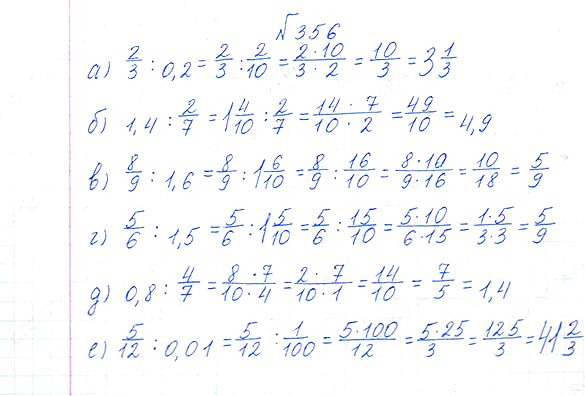 №356
а) 2/3 : 0,2 = 2/3 : 2/10 = 2·10/3·2 = 10/3 = 3 1/3
б) 1,4 : 2/7 = 1 4/10 : 2/7 = 14·7/10·2 = 49/10 = 4,9
в) 8/9 : 1,6 = 8/9 : 1 6/10 = 8/9 : 16/10 = 8·10/9·16 = 10/18 = 5/9
г) 5/6 : 1,5 = 5/6 : 1 5/10 = 5/6 : 15/10 = 5·10/6·15 = 1·5/3·3 = 5/9
д) 0,8 : 4/7 = 8·7/10·4 = 2·7/10·1 = 14/10 = 7/5 = 1,4
е) 5/12 : 0,01 = 5/12 : 1/100 = 5·100/12 = 5·25/3 = 125/3 = 41 2/3